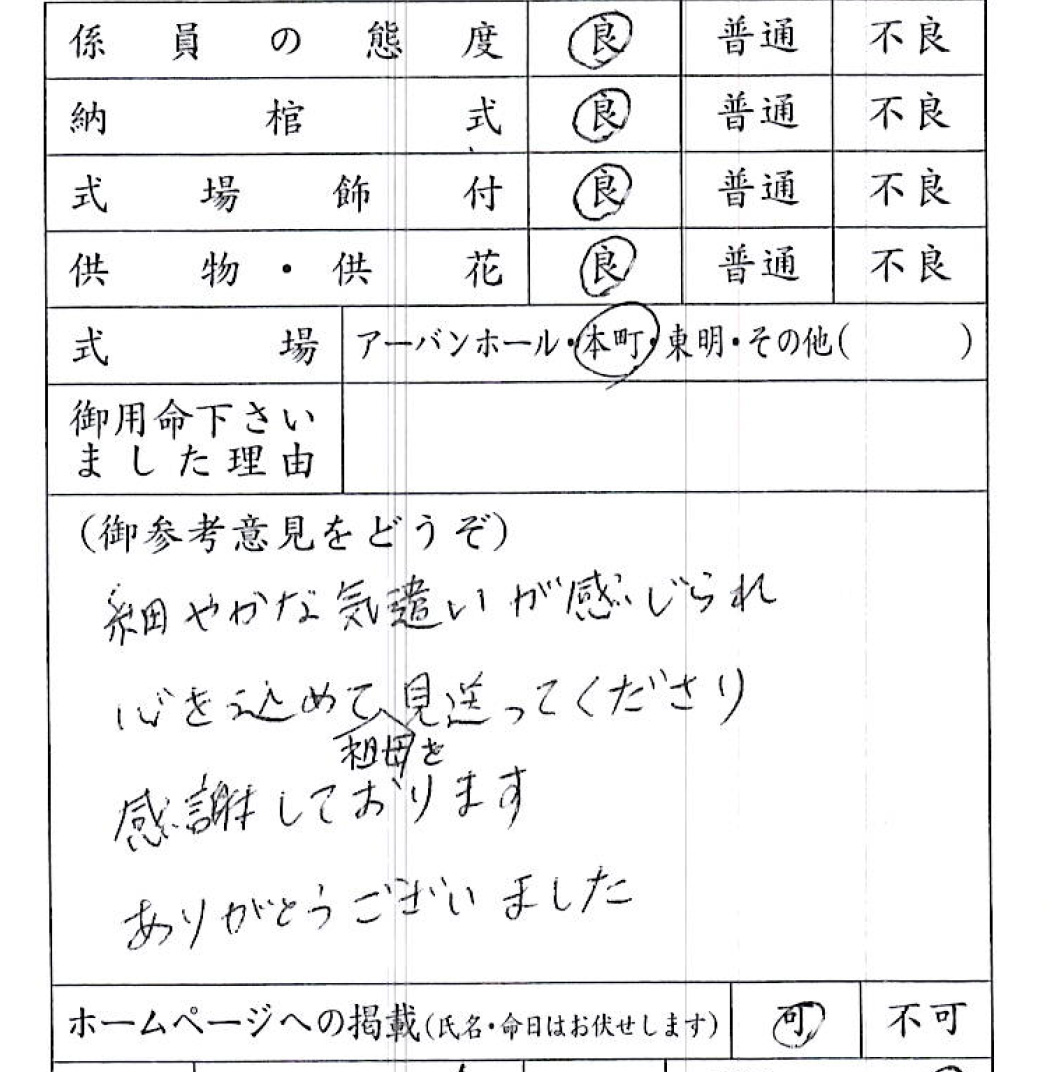 係員の態度 良 普通 不良
納棺式 良 普通 不良
式場飾付 良 普通 不良
供物・供花 良 普通 不良
式場 アーバンホール・本町・東明・その他(　　)
御用命下さい
ました理由
(御参考意見をどうぞ)
細やかな気遣いが感じられ
心を込めて見送ってくださり
祖母を
感謝しております
ありがとうございました
ホームページへの掲載(氏名・命日はお伏せします) 可 不可